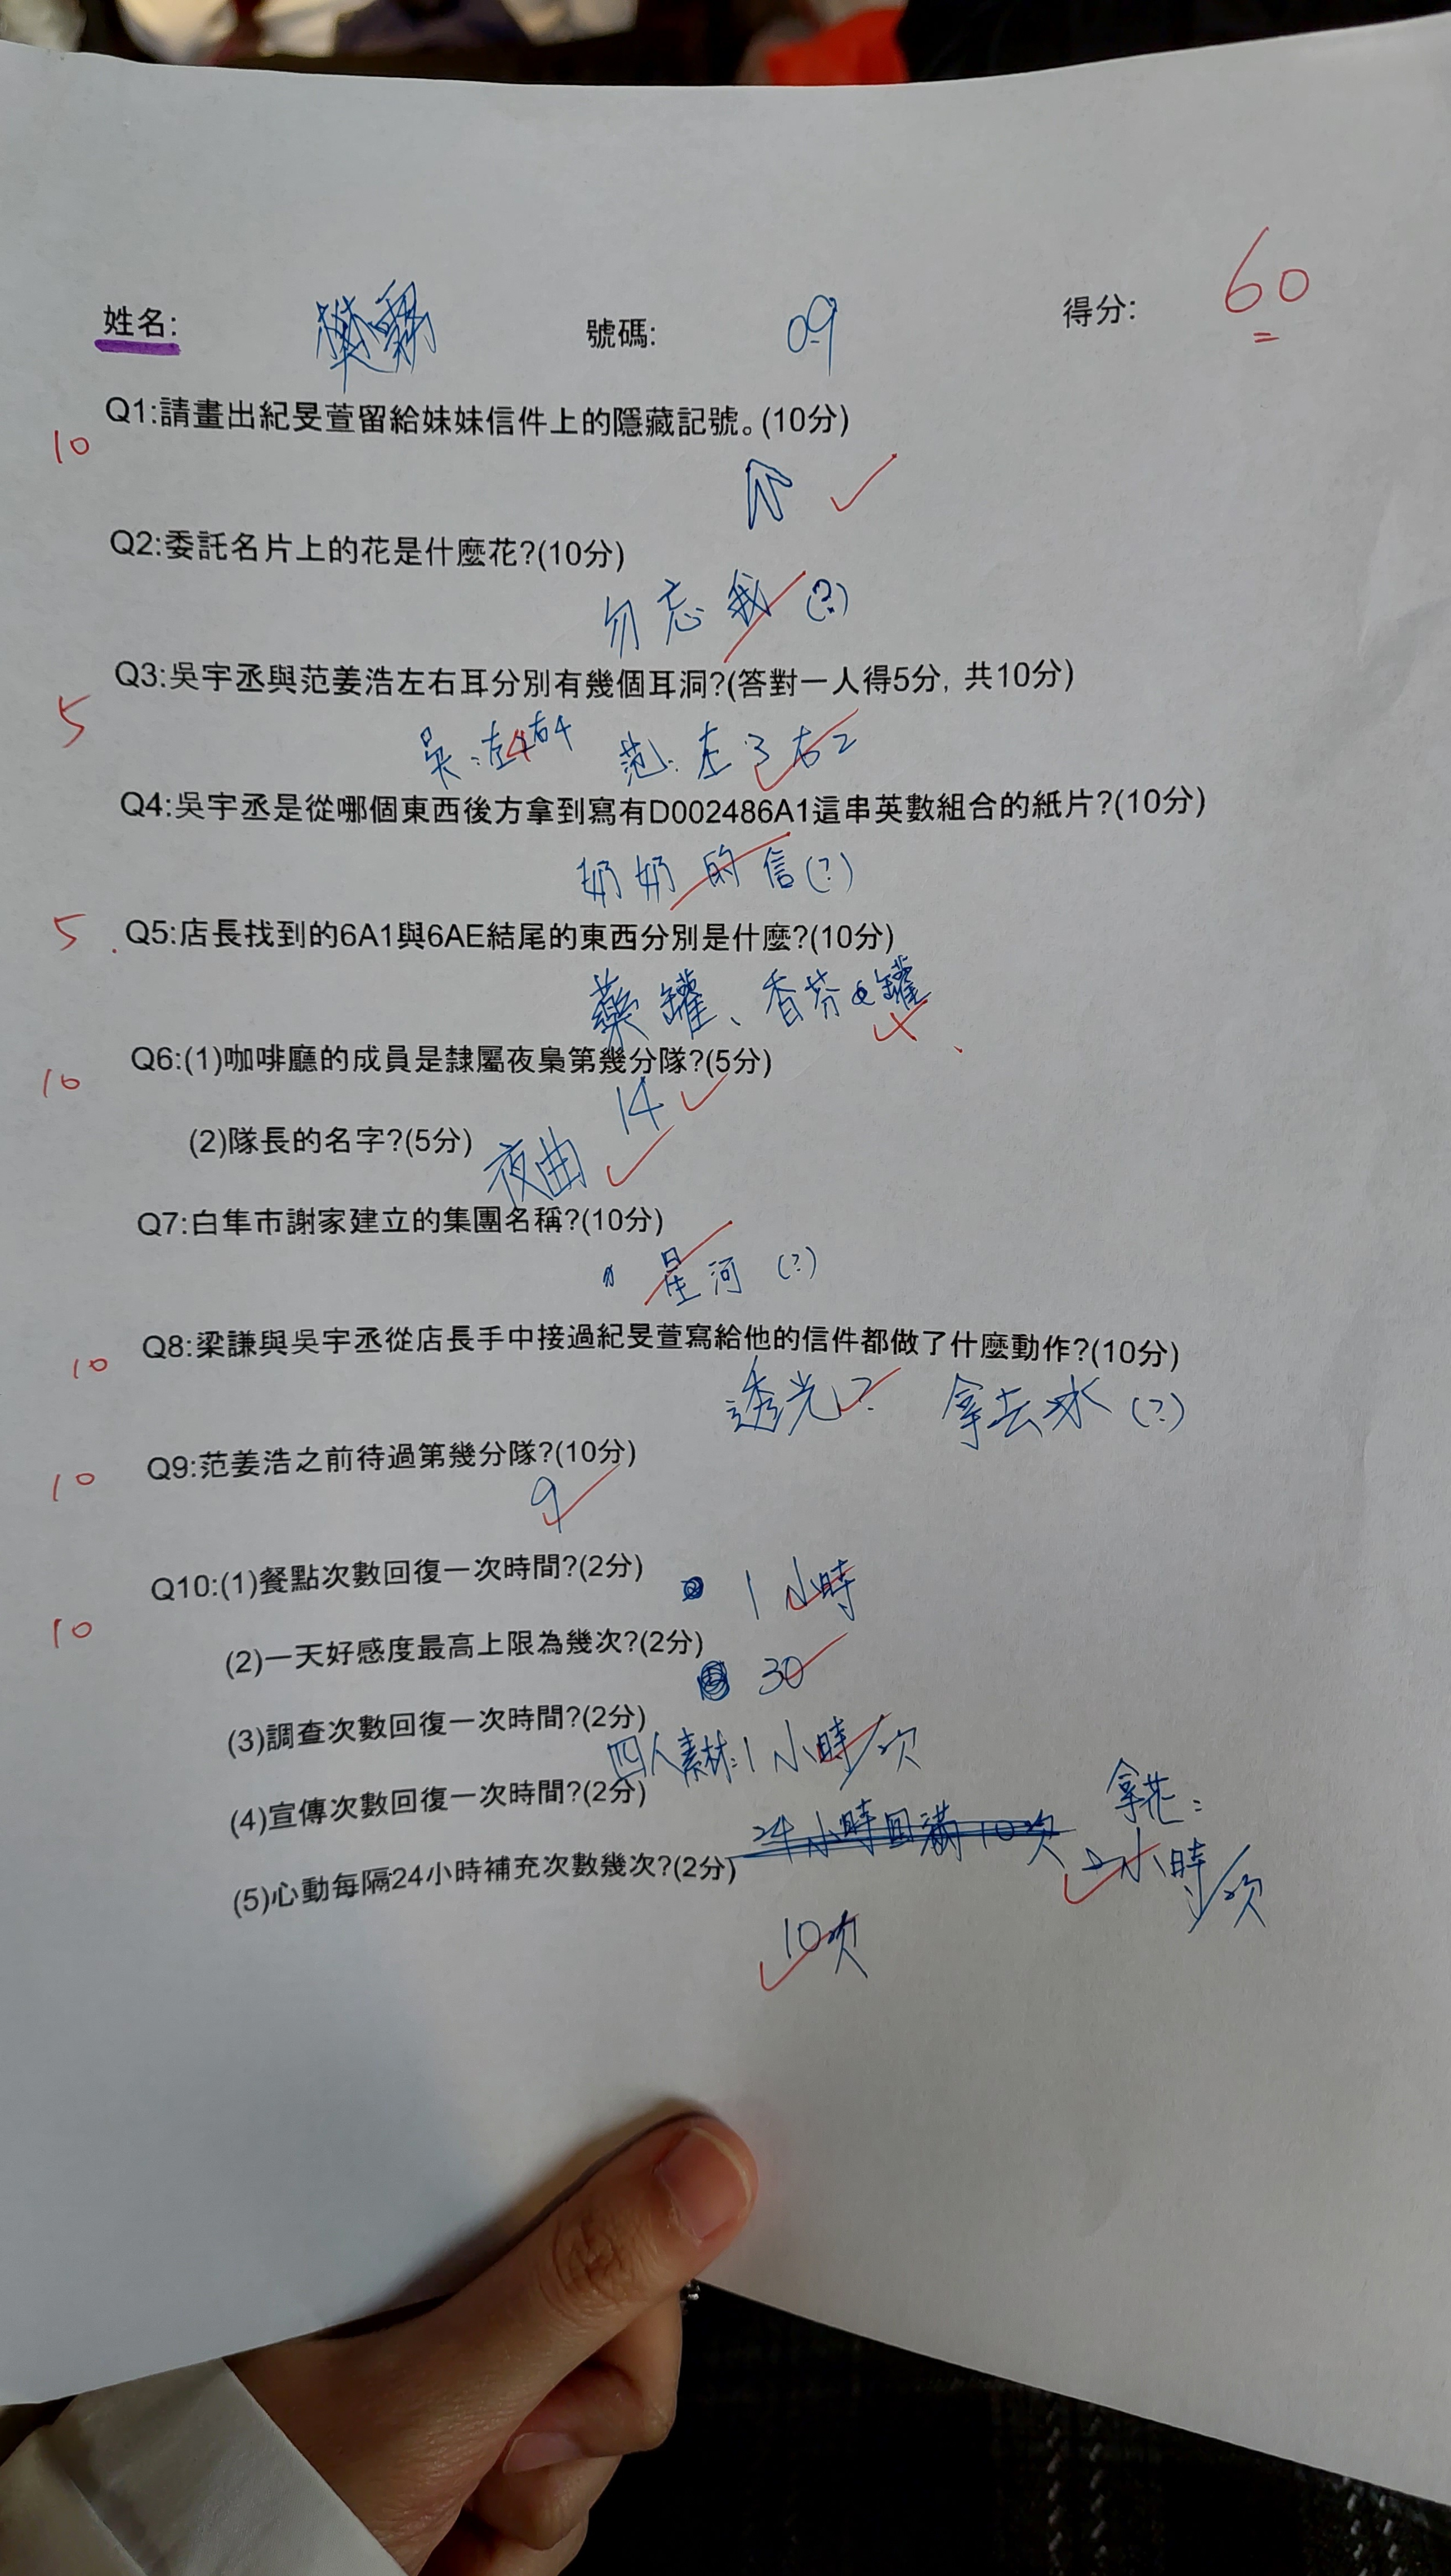 姓名: 號碼: 09 得分: 60
Q1:請畫出紀旻萱留給妹妹信件上的隱藏記號。(10分)
10
Q2:委託名片上的花是什麼花?(10分)
勿忘我(?)
Q3:吳宇丞與范姜浩左右耳分別有幾個耳洞?(答對一人得5分, 共10分)
5
吳:左4右4 范:左3右2
Q4:吳宇丞是從哪個東西後方拿到寫有D002486A1這串英數組合的紙片?(10分)
奶奶的信(?)
5 Q5:店長找到的6A1與6AE結尾的東西分別是什麼?(10分)
藥罐、香芬罐
10 Q6:(1)咖啡廳的成員是隸屬夜梟第幾分隊?(5分)
14
(2)隊長的名字?(5分)
夜曲
Q7:白隼市謝家建立的集團名稱?(10分)
星河(?)
10 Q8:梁謙與吳宇丞從店長手中接過紀旻萱寫給他的信件都做了什麼動作?(10分)
透光? 拿去冰(?)
10 Q9:范姜浩之前待過第幾分隊?(10分)
9
Q10:(1)餐點次數回復一次時間?(2分) 1小時
10
(2)一天好感度最高上限為幾次?(2分) 30
(3)調查次數回復一次時間?(2分)
四人素材:1小時/次
(4)宣傳次數回復一次時間?(2分)
拿花:
2小時/次
24小時回滿10次
(5)心動每隔24小時補充次數幾次?(2分)
10次